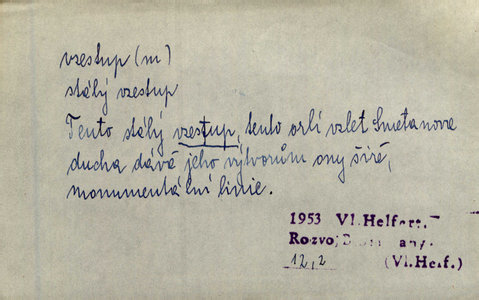 vzestup (m)
stálý vzestup
Tento stálý vzestup, tento orlí vzlet Smetanova
ducha dává jeho výtvorům ony širé,
monumentální linie.
1953 Vl.Helfert.
Rozvoj
12,2 (Vl.Helf.)